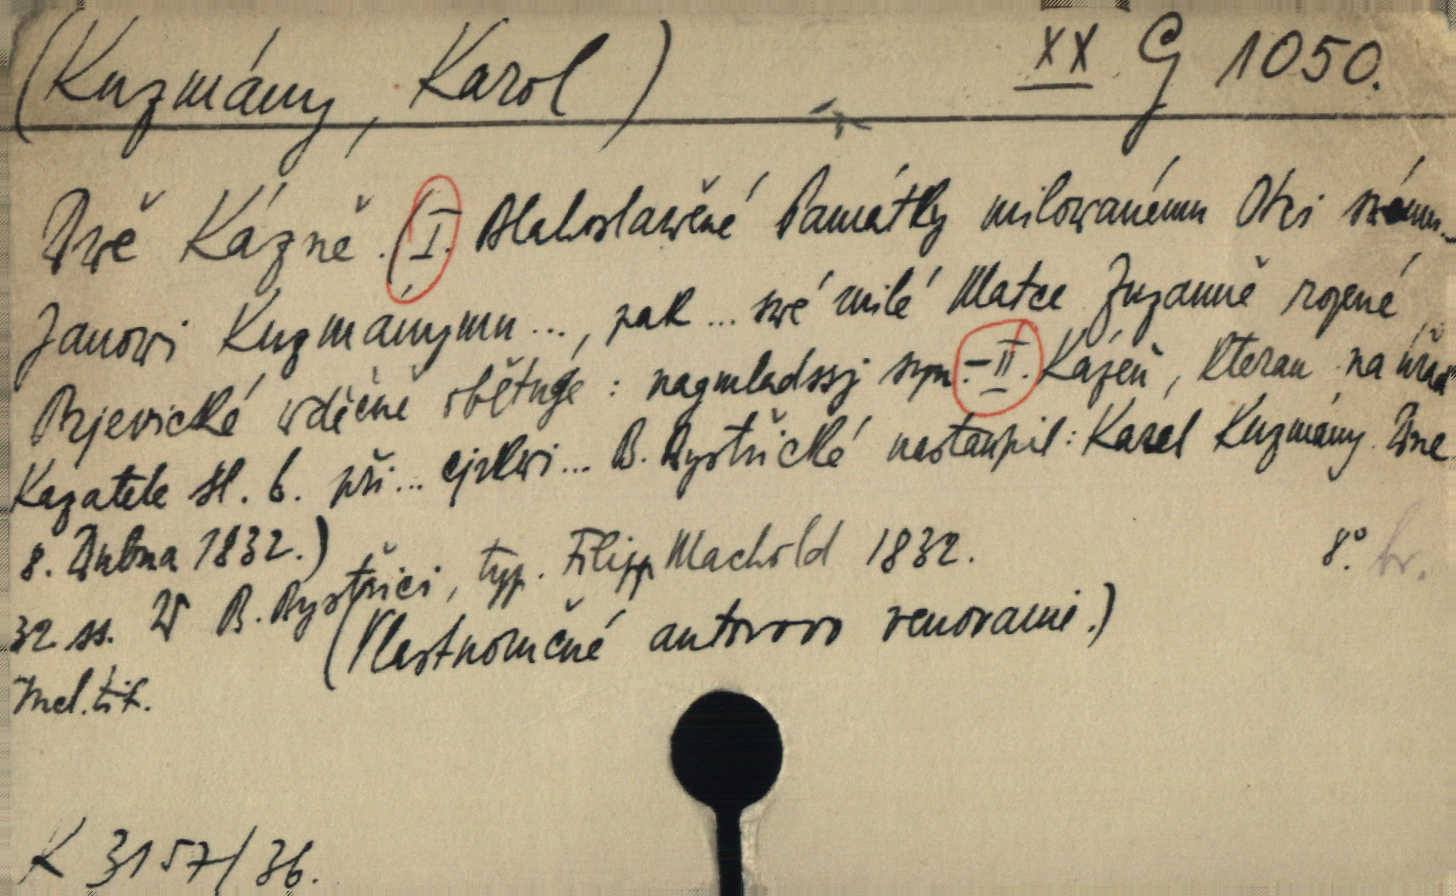 (Kuzmány, Karol) XX G 1050.
Dwě Kázně. (I. Blahoslawěné Památky milowanému Otci swému...
Janowi Kuzmánymu..., pak ... swé milé Matce Zuzanně rozené
Brjewické wděčně obětuge: nagmladssj syn. - II. Kázeň, kterau na úřad
Kazatele sl. b. při... cjrkwi... B. Bystřické nastaupil: Karel Kuzmány. Dne
8. Dubna 1832.)
W B. Bystřici, typ. Filipp Machold 1832. 8° br.
32 ss. (Vlastnoručné autorovo venovanie.)
Incl. tit.
K 3157/36.